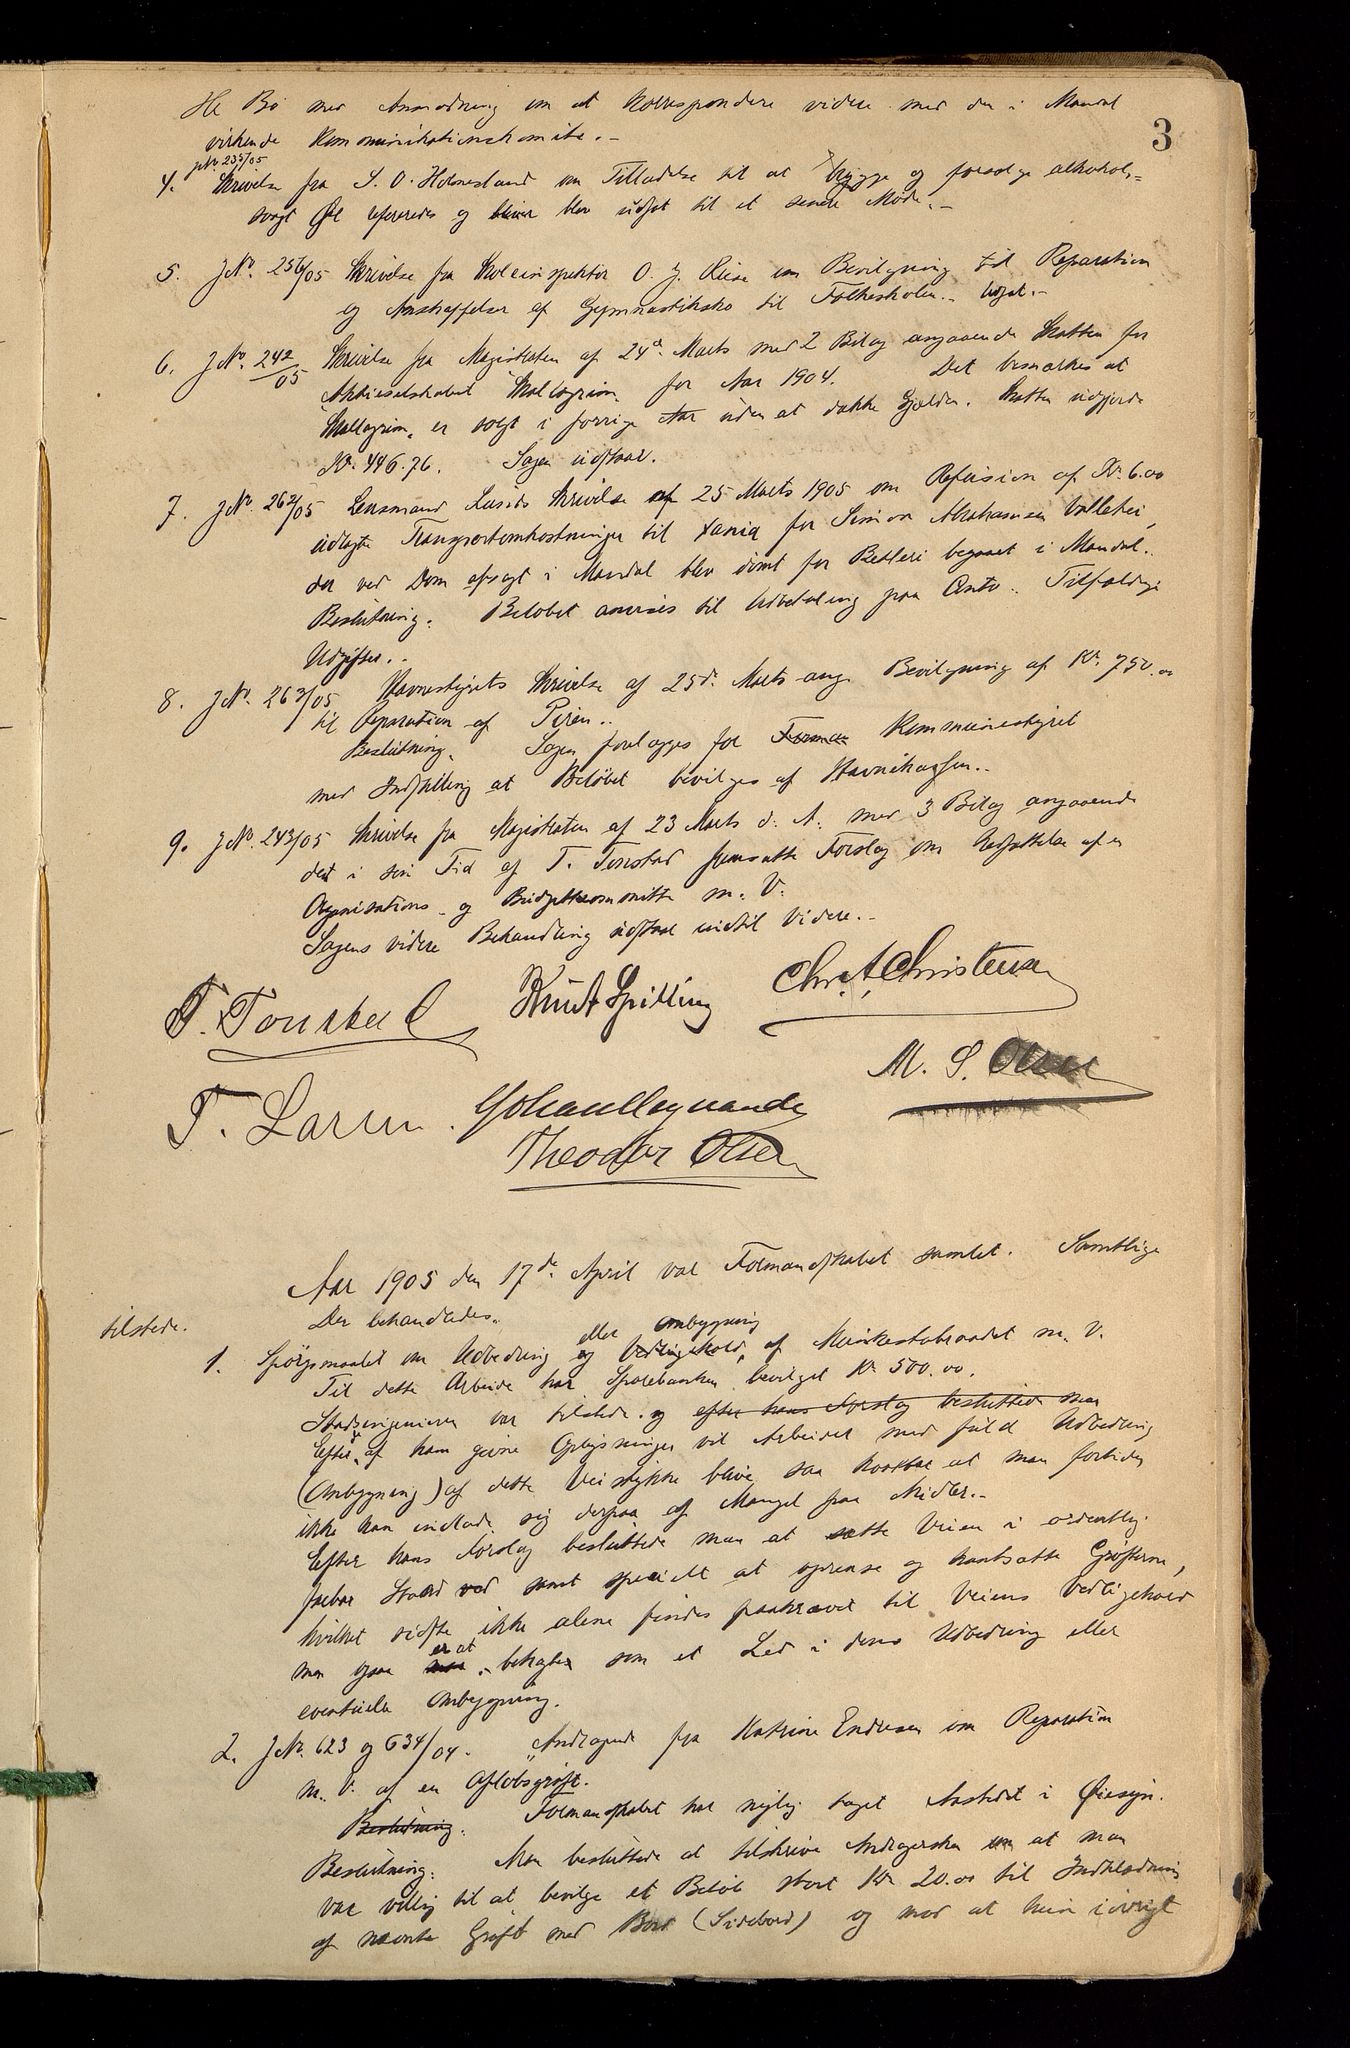 3
Hr Bø med Anmodning om at korrespondere videre med den i Mandal
virkende Kommunikationskomite.-
JNr 235/05
4. Skrivelse fra S. O. Holmesland om Tilladelse til at brygge og forsælge alkohol-
svagt Øl refereredes og bliver blev udsat til et senere Møde.-
5. JNo. 256/05 Skrivelse fra Skoleinspektør O. J. Riise om Bevilgning til Reparation
og Anskaffelser af Gymnastiksko til Folkeskolen.- Udsat.-
6. JNo. 242/05 Skrivelse fra Magistraten af 24de Marts med 2 Bilag angaaende Skatten for
Aktieselskabet "Skallagrim" for Aar 1904. Det bemærkes at
"Skallagrim" er solgt i forrige Aar uden at dække Gjælden. Skatten udgjorde
Kr. 446.76. Sagen udstaar.
7. JNo. 262/05 Lensmand Lunds Skrivelse af 25 Marts 1905 om Refusion af Kr. 6.00
udlagte Transportomkostninger til for Simon Abrahamsen
der ved Dom afsagt i Mandal blev dømt for Betleri begaaet i Mandal.
Beslutning. Beløbet anvises til Udbetaling paa Conto: Tilfældige
Udgifter.-
8. JNo. 263/05 Havnestyrets Skrivelse af 25de Marts ang. Bevilgning af Kr. 750.00
til Reparation af Piren..
Beslutning. Sagen forelægges for Forman Kommunestyret
med Indstilling at Beløbet bevilges af Havnekassen..
9. JNo. 243/05 Skrivelse fra Magistraten af 23 Marts d. A. med 3 Bilag angaaende
det i sin Tid af T. Tonstad fremsatte Forslag om Nedsættelse af en
Organisations- og Budgetkommitte m. V.
Sagens videre Behandling udstaar indtil Videre.-
T. Tonstad Knut Spilling Chr. A. Christensen
M. S. Olsen
T. Larsen. Johan Magnus
Theodor Olsen
Aar 1905 den 17de April var Formandskabet samlet. Samtlige
tilstede.
Der behandledes:
eller Ombygning
1. Spørgsmaalet om Udbedring og Vedligehold af m. V.
Til dette Arbeide har Sparebanken bevilget Kr. 500.00.
Stadsingeniøren var tilstede og efter hans Forslag besluttede man
Efter de af ham givne Oplysninger vil Arbeidet med fuld Udbedring
(Ombygning) af dette Veistykke blive saa kostbar at man fortiden
ikke kan indlade sig derpaa af Mangel paa Midler.-
Efter hans Forslag besluttede man at sætte Veien i ordentlig
farbar Stand ved samt specielt at oprense og kantsætte Grøfterne,
hvilket sidste ikke alene findes paakrævet til Veiens Vedligehold
er at
men ogsaa maa betragte som et Led i dens Udbedring eller
eventuelle Ombygning.
2. JNo. 623 og 634/04. Andragende fra Katrine Endresen om Reparation
m. V. af en Afløbsgrøft.
Beslutning. Formandskabet har nylig taget Aastedet i Øiesyn.
Beslutning. Man besluttede at tilskrive Andragersken om at man
var villig til at bevilge et Beløb stort Kr. 20.00 til Indklædning
af nævnte Grøft med Bord (Sidebord) og mod at hun iøvrigt